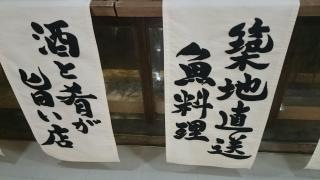 築地直送
魚料理
酒と肴が
旨い店